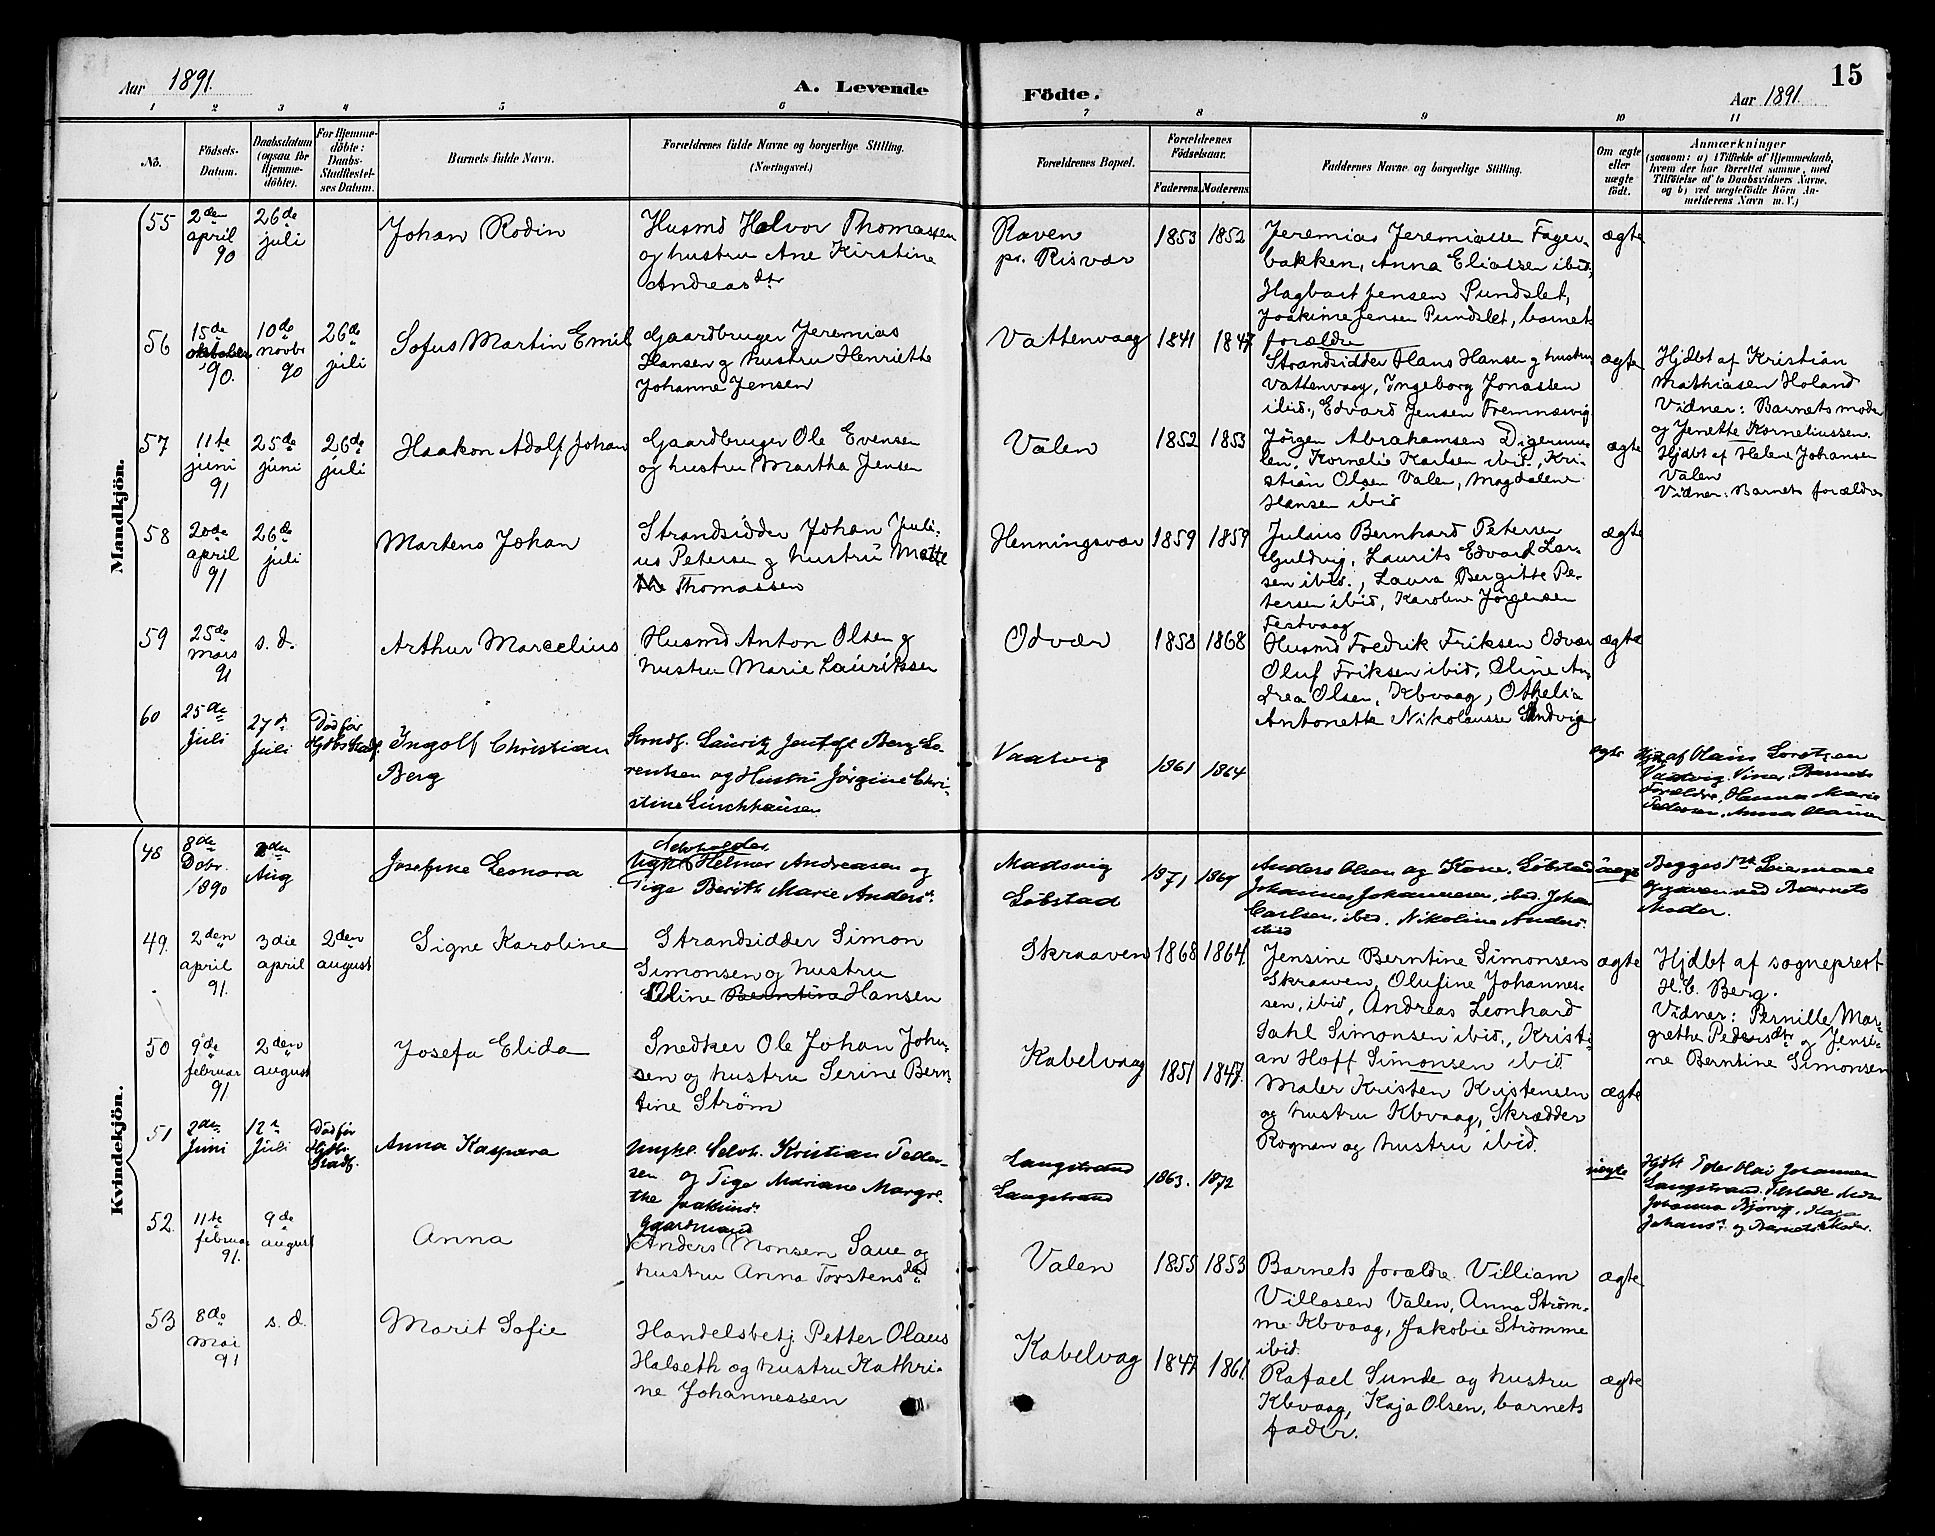 Aar 1891.
A. Levende
Födte.
Aar 1891.
15
1 2 3 4 5 6 7 8 9 10 11
No.
Födsels-
Datum.
Daabsdatum
(ogsaa for
Hjemme-
döbte).
For Hjemme-
döbte:
Daabs-
Stadfæstel-
ses Datum.
Barnets fulde Navn.
Forældrenes fulde Navne og borgerlige Stilling.
(Næringsvei.)
Forældrenes Bopæl.
Forældrenes
Födselsaar.
Faderens. Moderens.
Faddernes Navne og borgerlige Stilling.
Om ægte
eller
uægte
födt.
Anmærkninger
(saasom: a) i Tilfælde af Hjemmedaab,
hvem der har forrettet samme, med
Tilföielse af to Daabsvidners Navne,
og b) ved uægtefödte Börn An-
melderens Navn m. V.)
Mandkjön.
55
2den
april
90
26de
juli
Johan Rodin
Husmd Halvor Thomassen
og hustru Ane Kirstine
Andreasdtr
Raven
pr. Risvær
1853 1852
Jeremias Jeremiassen Fager-
bakken, Anna Eliassen ibid,
Hagbart Jensen Pundslet,
Joakime Jensen Pundslet, barnets
forældre
ægte
56
15de
oktober
90.
10de
novbr
90
26de
juli
Sofus Martin Emil
Gaardbruger Jeremias
Hansen g hustru Henriette
Johanne Jensen
Vattenvaag
1841 1847
Strandsidder Hans Hansen g hustru
Vattenvaag, Ingeborg Jonassen
ibid., Edvard Jensen Fremnesvig
ægte
Hjdbt af Kristian
Mathiasen Holand
Vidner: Barnets moder
og Jenette Korneliussen.
57
11te
juni
91
25de
juni
26de
juli
Haakon Adolf Johan
Gaardbruger Ole Evensen
og hustru Martha Jensen
Valen
1852 1853
Jörgen Abrahamsen Digermu-
len, Kornelis Karlsen ibid., Kri-
stian Olsen Valen, Magdalene
Hansen ibid
ægte
Hjdbt af Helene Johansen
Valen
Vidner: Barnets forældre
58
20de
april
91
26de
juli
Martens Johan
Strandsidder Johan Juli-
us Petersen g hustru Mette
Thomassen
Henningsvær
1859 1859
Julius Bernhard Petersen
Guldvig, Laurits Edvard Lar-
sen ibid., Laura Bergitte Pe-
tersen ibid, Karoline Jörgensen
Festvaag
ægte
59
25de
Mars
91
s. d.
Arthur Marcelius
Husmd Anton Olsen g
hustru Marie Lauritssen
Odvær
1858 1868
Husmd Fredrik Friksen Odvær
Oluf Friksen ibid, Oline An-
drea Olsen, Kbvaag, Othelia
Antonette Nikolausse Sandvig
ægte
60
25de
Juli
27d
Juli
Död før
Hjdbs Stadf.
Ingolf Christian
Berg
Lauritz Berg Lo-
rentsen og Hustru Jørgine Chri-
stine
Vaatvig
1861 1864
ægte
Hjd af Hans Lorntzen
Vaatvig. Vidner, Barnets
Forældre, Hanna Marie
Pedersen, Anna Clausen
Kvindekjön.
48
8de
Dcbr.
1890
2den
Aug
Josefine Leonora
Selvholder
Ugkl Helmer Andreasen og
Pige Berith Marie Anders.
Madsvig
Löbstad
1871 1869
Anders Olsen og Kone. Löbstad
Johannes Johannesen, ibid. Johan
Carlsen, ibid. Nikoline Anders.
ibid
uægte
Begges 1ste Leiermaal
Opgiven ved Barnets
Moder.
49.
2den
april
91.
3die
april
2den
august
Signe Karoline
Strandsidder Simon
Simonsen og hustru
Oline Berntina Hansen
Skraaven
1868 1864.
Jensine Berntine Simonsen
Skraaven, Olufine Johannes-
sen, ibid, Andreas Leonhard
Dahl Simonsen ibid., Kristi-
an Hoff Simonsen ibid
ægte
Hjdbt af sogneprest
H. C. Berg.
Vidner: Pernille Mar-
grethe Pedersdtr og Jensi-
ne Berntine Simonsen
50
9de
februar
91
2den
august
Josefa Elida
Snedker Ole Johan John-
sen og hustru Serine Bern-
tine Ström
Kabelvaag
1851 1847.
Maler Kristen Kristensen
og hustru Kbvaag, Skrædder
Rognan og hustru ibid.
ægte
51
2den
Juni
12te
Juli
Död før
Hjdbs
Stadf.
Anna Kaspara
Ungkl. Selvh. Kristian Peder-
sen og Pige Mariane Margre-
the Joakims.
Langstrand
Langstrand
1863. 1872
uægte
Hjdbt Peder Olai Johannesen
Langstrand. Tilstede
Johanna Bjørvig, Kaja
Johans. og Barnets Moder.
52.
11te
februar
91.
9de
august
Anna
Gaardmand
Anders Monsen Saue og
hustru Anna Torstensdtr
Valen
1855 1853
Barnets forældre. Villiam
Villasen Valen, Anna Ström-
me Kbvaag, Jakobie Strömme
ibid.
ægte
53
8de
Mai
91
s. d.
Marit Sofie
Handelsbetj Petter Olaus
Halseth og hustru Kathri-
ne Johannessen
Kabelvag
1847 1861.
Rafael Sunde og hustru
Kbvaag, Kaja Olsen, barnets
fader.
ægte